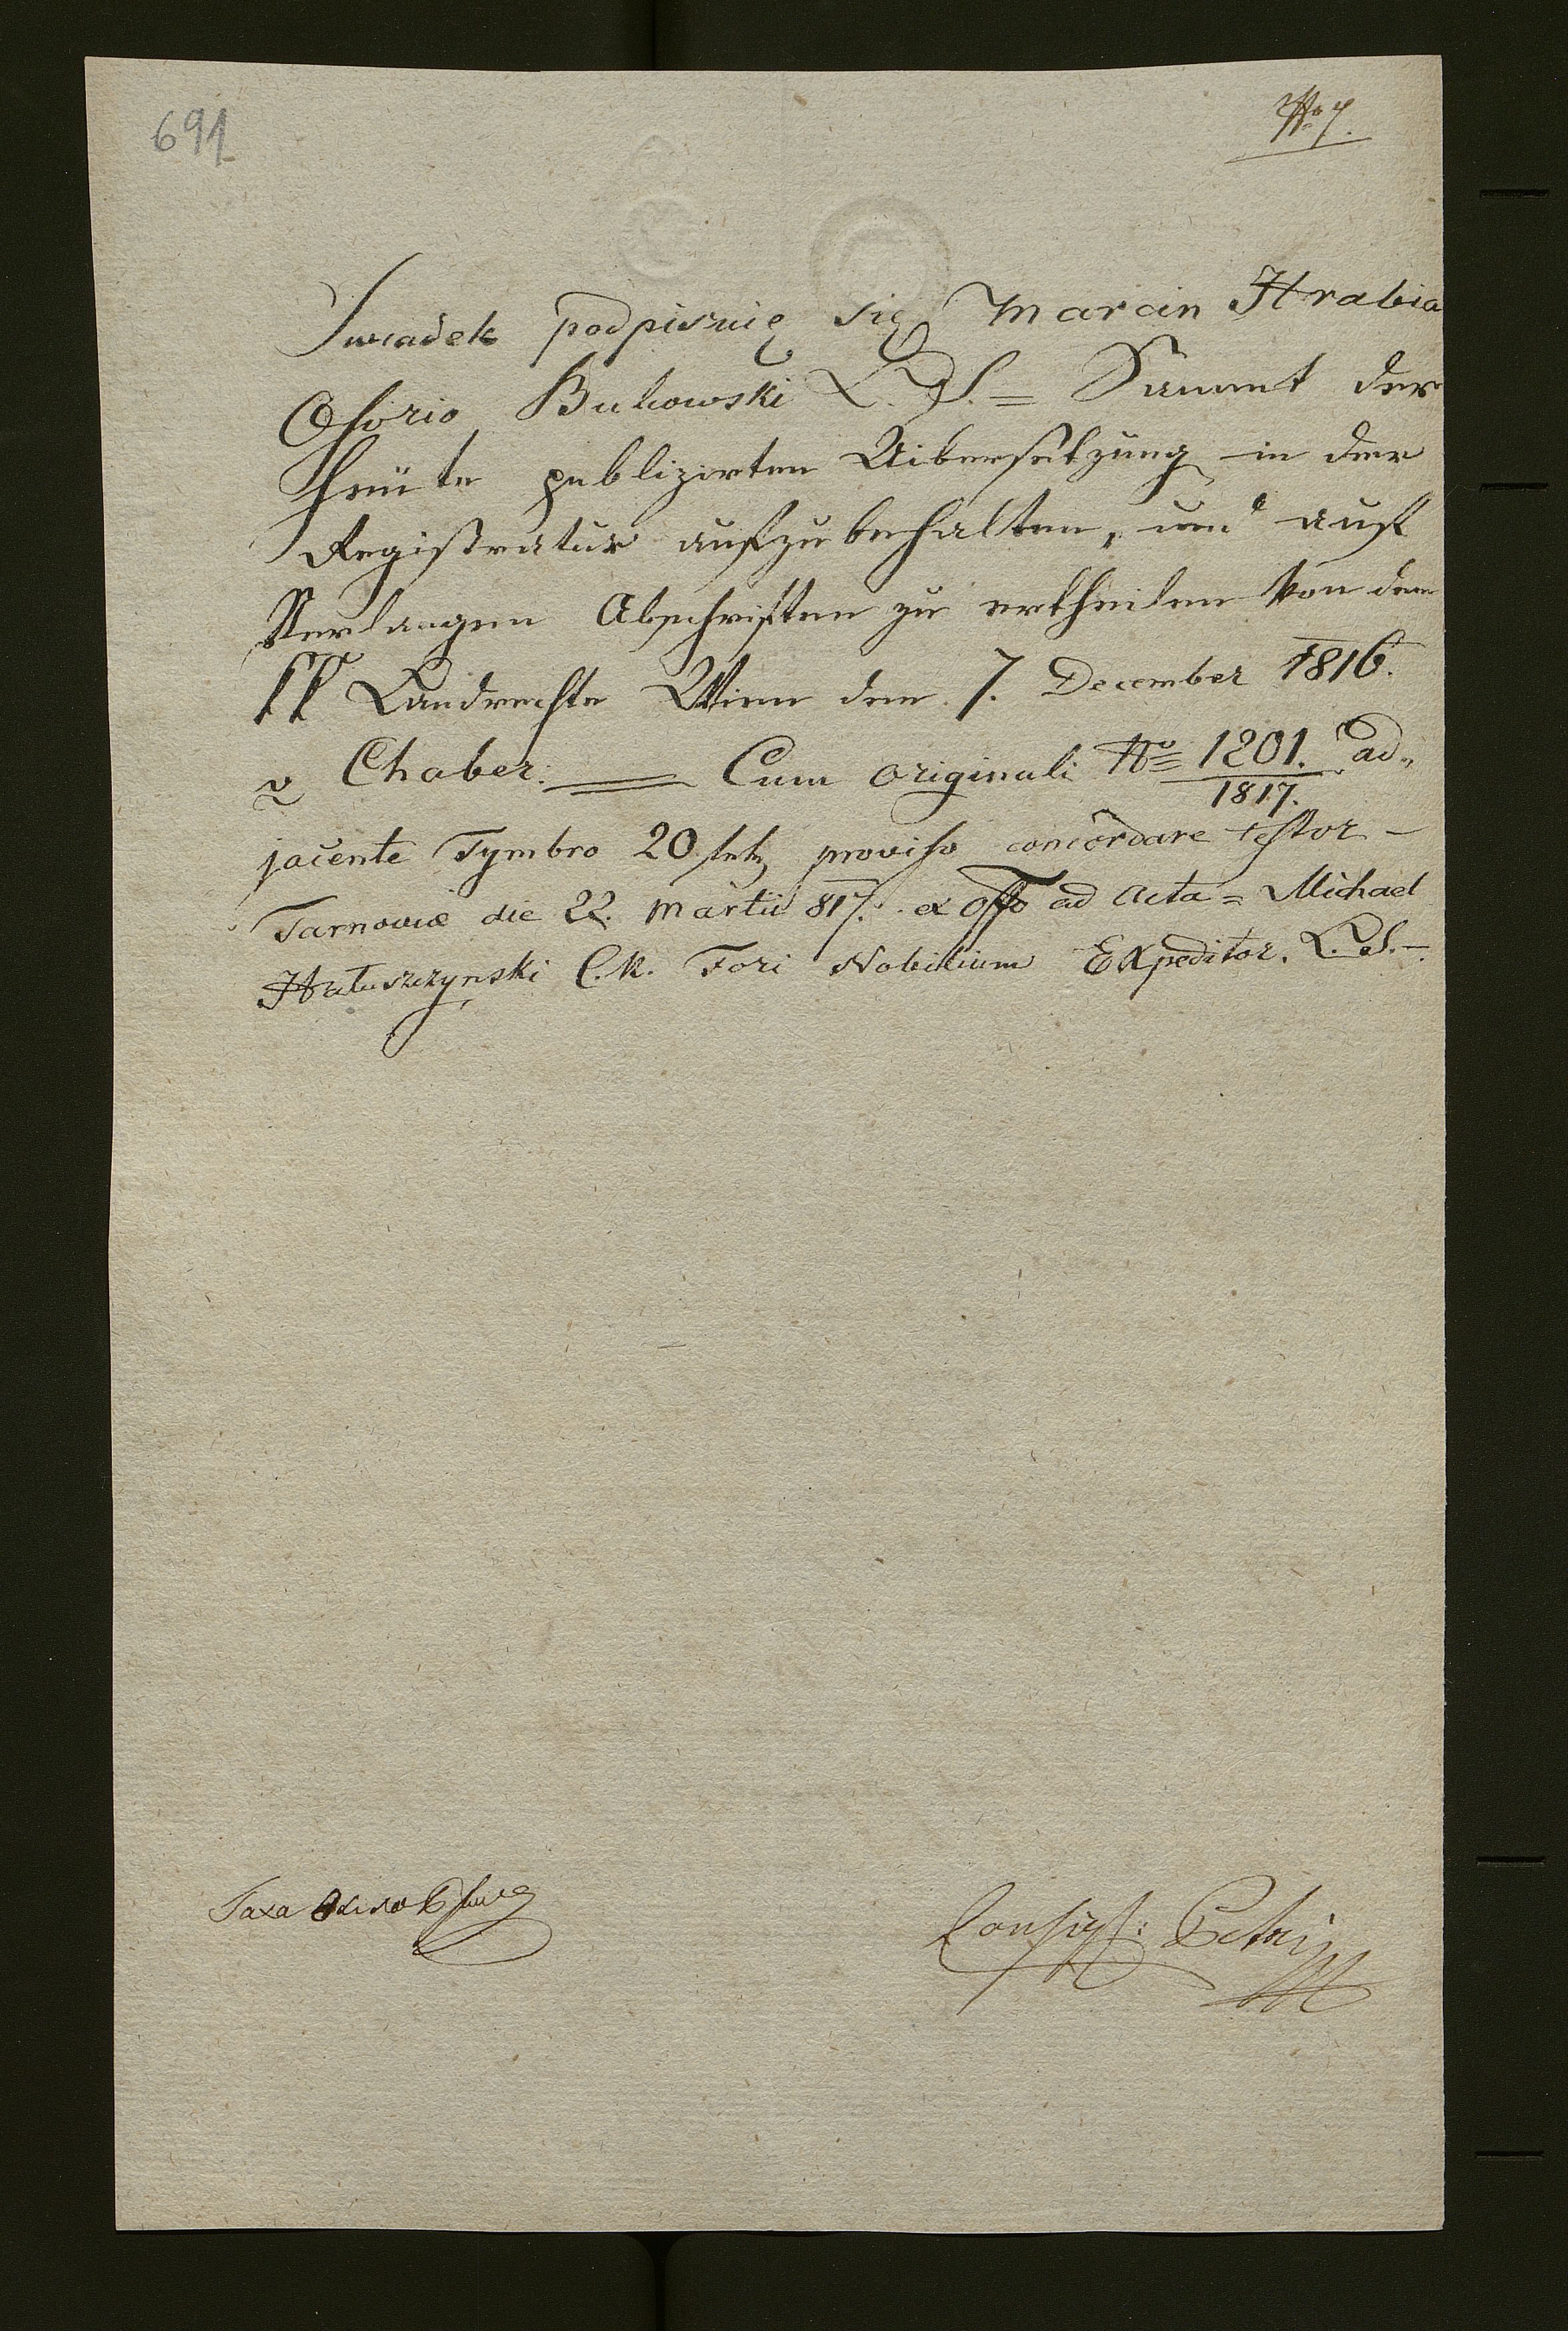 691
No 7.
Swiadek podpisuię się Marcin Hrabia
Osorio Bukowski L. S. = Sammt der
heute publizirten Uibersetzung in der
Registratur aufzubehalten, und auf
Verlangen Abschriften zu ertheilen Von den
kk Landrechte Wien den 7. December 1816.
v Chaber. — Cum originali No 1201. ad„
1817.
jacente Tymbro 20 proviso concordare testor –
Tarnoviæ die 22. Martii 817. ex Offo ad Acta = Michael
Hałuszczynski C. R. Fori Nobilium Expeditor. L. S. –
Taxa